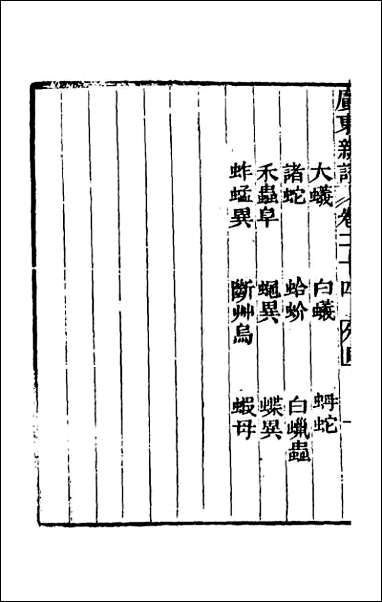 廣東新語 卷二十四 目 一
大蟻 白蟻 蚺蛇
諸蛇 蛤蚧 白蠟蟲
禾蟲阜 蠅異 蝶異
蚱蜢異 斷艸烏 蝦母